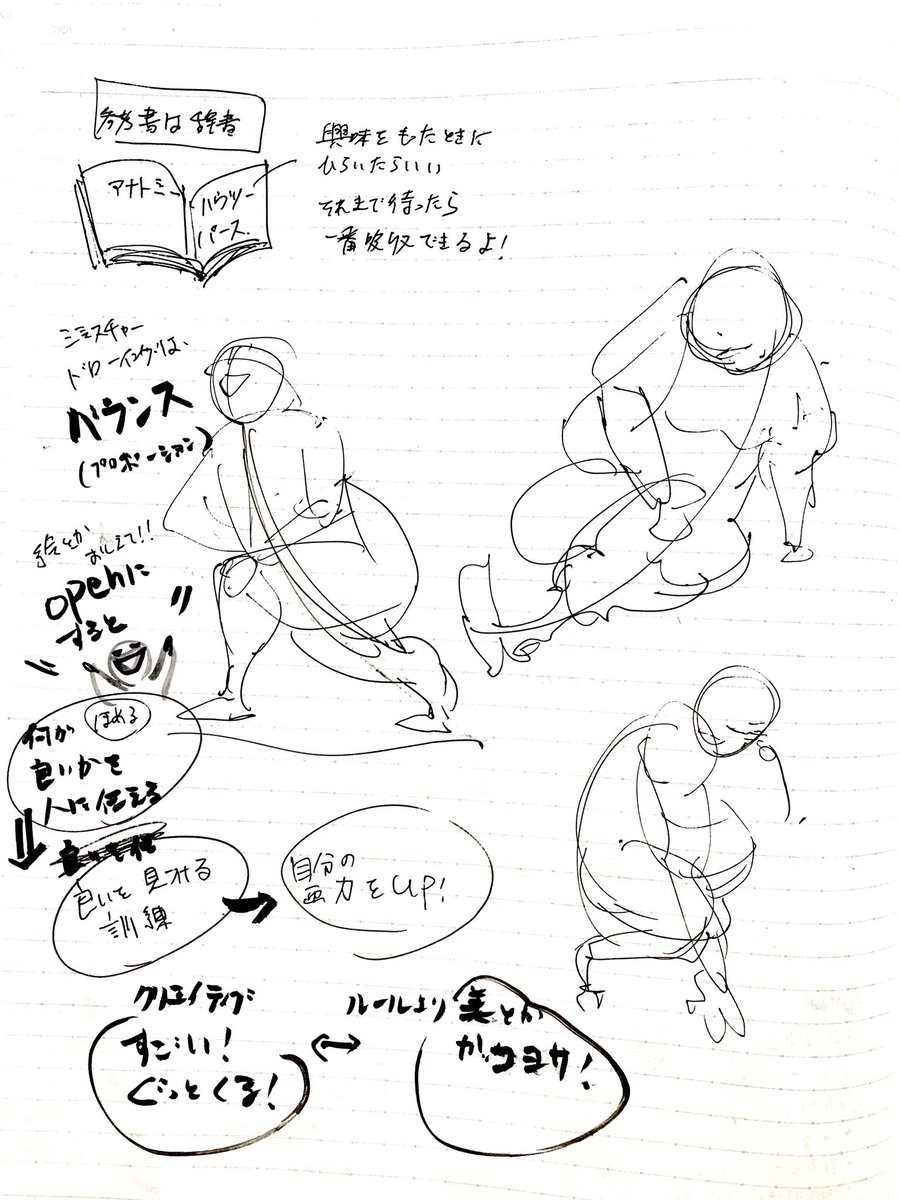 参考書は辞書
アナトミー
ハウツー
パース
興味をもたときに
ひらいたらいい
それまで待ったら
一番吸収できるよ!
ジェスチャー
ドローイングは、
バランス
(プロポーション)
絵とか
おしえて!!
openに
すると
ほめる
何が
良いかを
人に伝える
良いを見つける
訓練
自分の
画力をUP!
クリエイティブ
すごい!
ぐっとくる!
ルールより美とか
カッコヨサ!